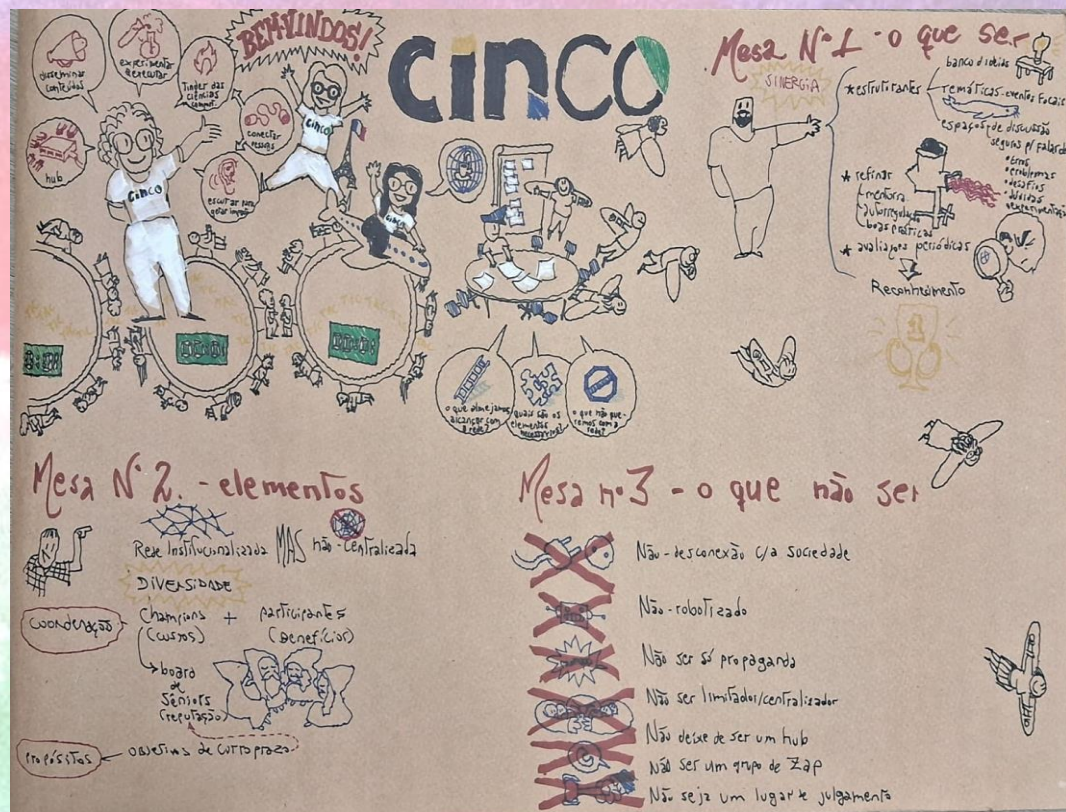 BEM-VINDOS!
CINCO
disseminar
conteúdos
experimentar
& executar
Tinder das
ciências
comport.
conectar
pessoas
hub
escutar para
gerar impacto
CINCO
CINCO
CINCO
TIC TAC
o que almejamos
alcançar com
a rede?
quais são os
elementos
necessários?
o que não que-
remos com a
rede?
Mesa Nº1 - o que ser
SINERGIA
★ estruturantes
banco d ideias
temáticas-eventos focais
espaços de discussão
seguros p/ falar de
• erros
• problemas
• desafios
• dúvidas
• experimentação
★ refinar
mentoria
autorregulação
boas práticas
★ avaliações periódicas
Reconhecimento
1
Mesa Nº2. - elementos
Rede Institucionalizada MAS não-centralizada
DIVERSIDADE
coordenação
Champions + participantes
(custos) (Benefícios)
board
de
Sêniors
(reputação)
Propósitos
objetivos de curto prazo
Mesa nº3 - o que não ser
Não-desconexão c/a sociedade
Não-robotizado
Não ser só propaganda
Não ser limitador/centralizador
Não deixe de ser um hub
Não ser um grupo de Zap
Não seja um lugar de julgamento